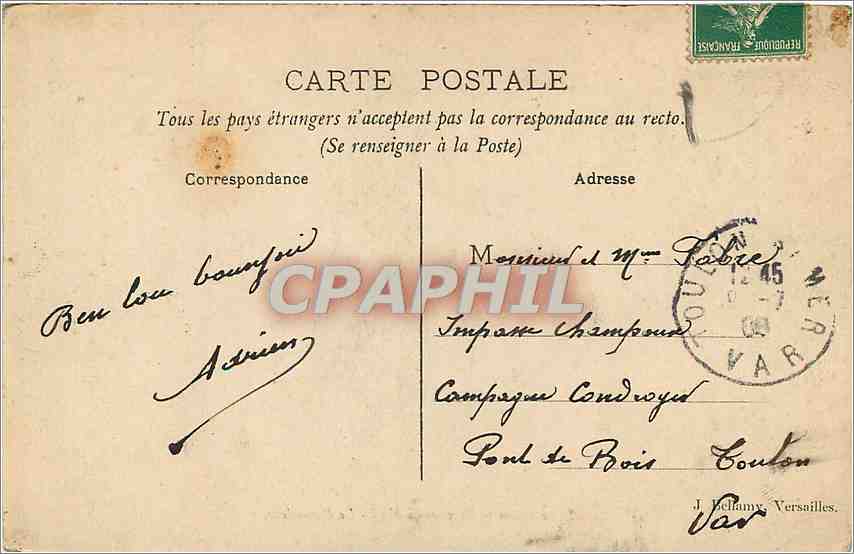 RÉPUBLIQUE FRANÇAISE
CARTE POSTALE
Tous les pays étrangers n'acceptent pas la correspondance au recto.
(Se renseigner à la Poste)
Correspondance
Adresse
Ben lou bounjou
Adrien
Monsieur et Mme Fabre
Impasse Champeux
Campagne Condroyer
Pont de Bois Toulon
Var
TOULON S. MER
12 45
-7
08
VAR
J. Bellamy, Versailles.
CPAPHIL